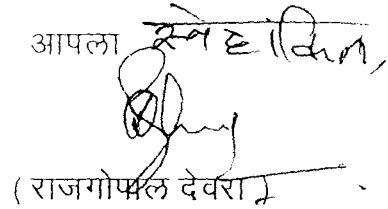 आपला स्नेहांकित,
(राजगोपाल देवरा)